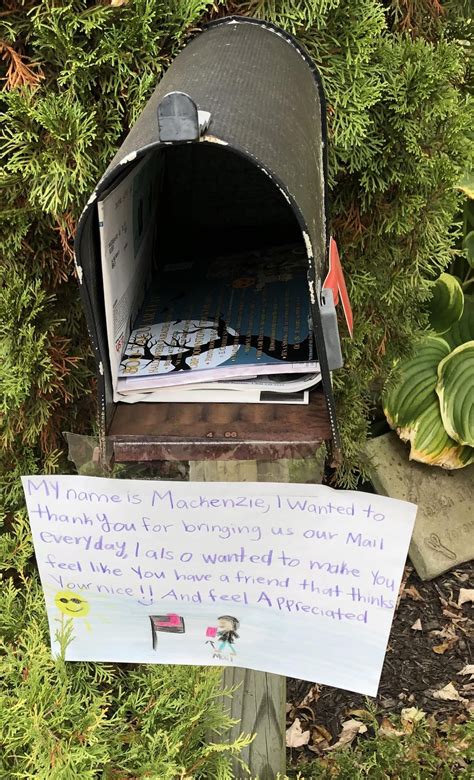 My name is Mackenzie, I wanted to
thank you for bringing us our Mail
everyday, I also wanted to make you
feel like you have a friend that thinks
your nice!! And feel Appreciated
Mail